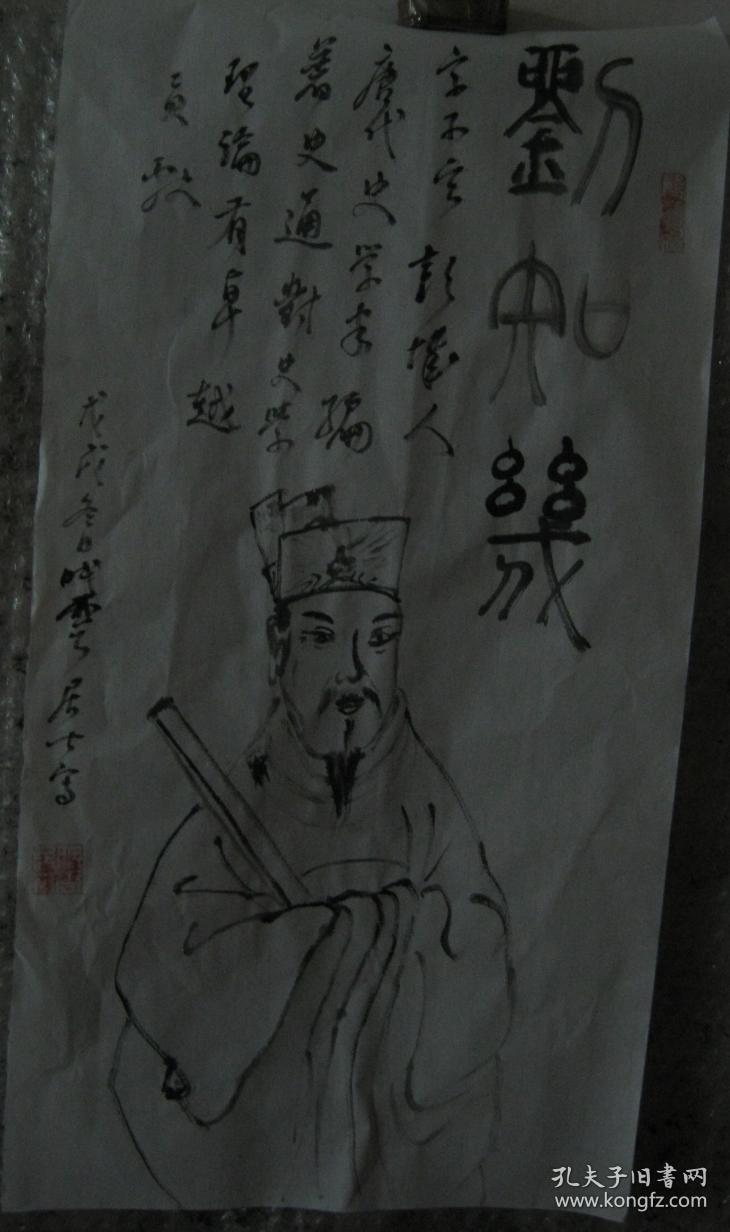 劉知幾
字子玄 彭城人
唐代史学家編
著史通對史学
理論有卓越
貢献
戊戌冬日雲居士寫
孔夫子旧書网
www.kongfz.com